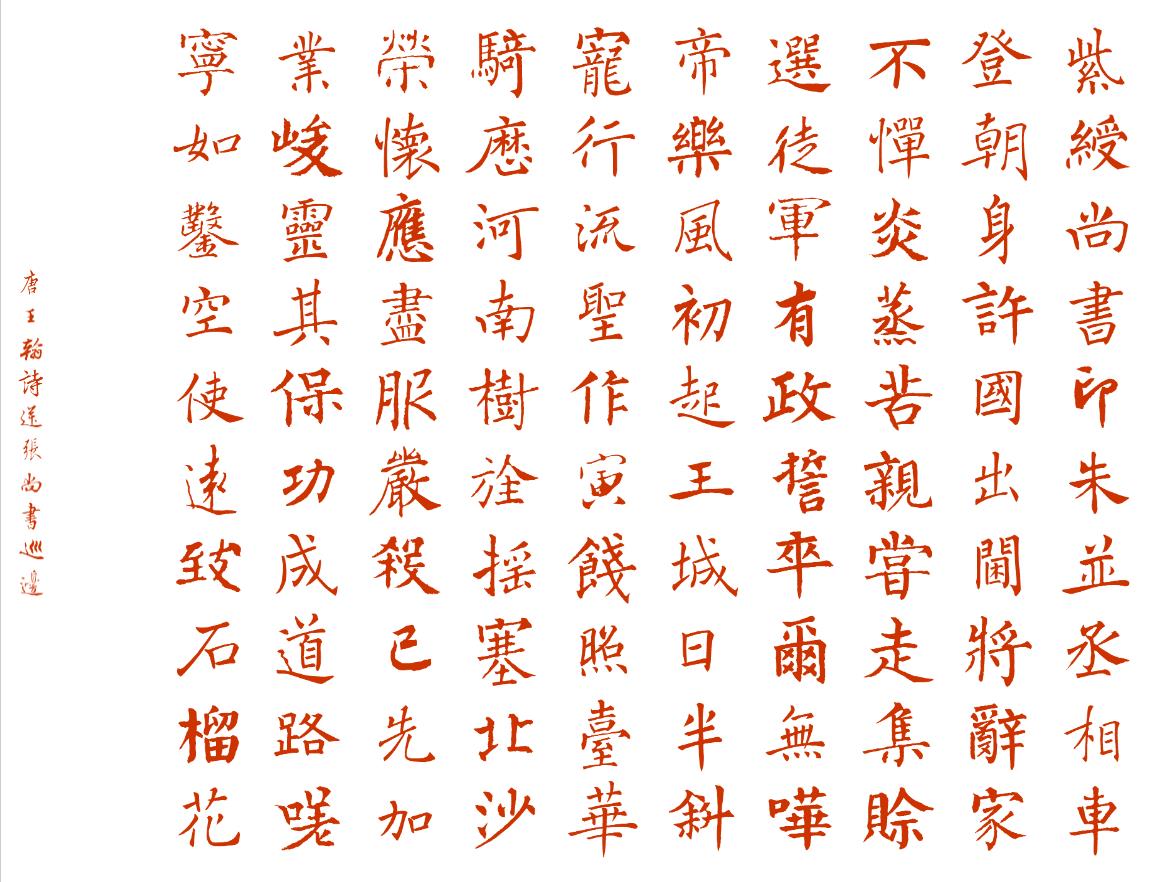 紫綬尚書印朱並丞相車
登朝身許國出閫將辭家
不憚炎蒸苦親嘗走集賒
選徒軍有政誓卒爾無嘩
帝樂風初起王城日半斜
寵行流聖作寅餞照臺華
騎歷河南樹旌搖塞北沙
榮懷應盡服嚴殺已先加
業峻靈其保功成道路嗟
寧如鑿空使遠致石榴花
唐王翰詩送張尚書巡邊